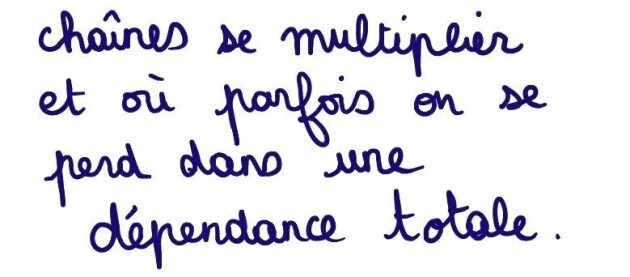 chaînes se multiplier
et où parfois on se
perd dans une
dépendance totale.